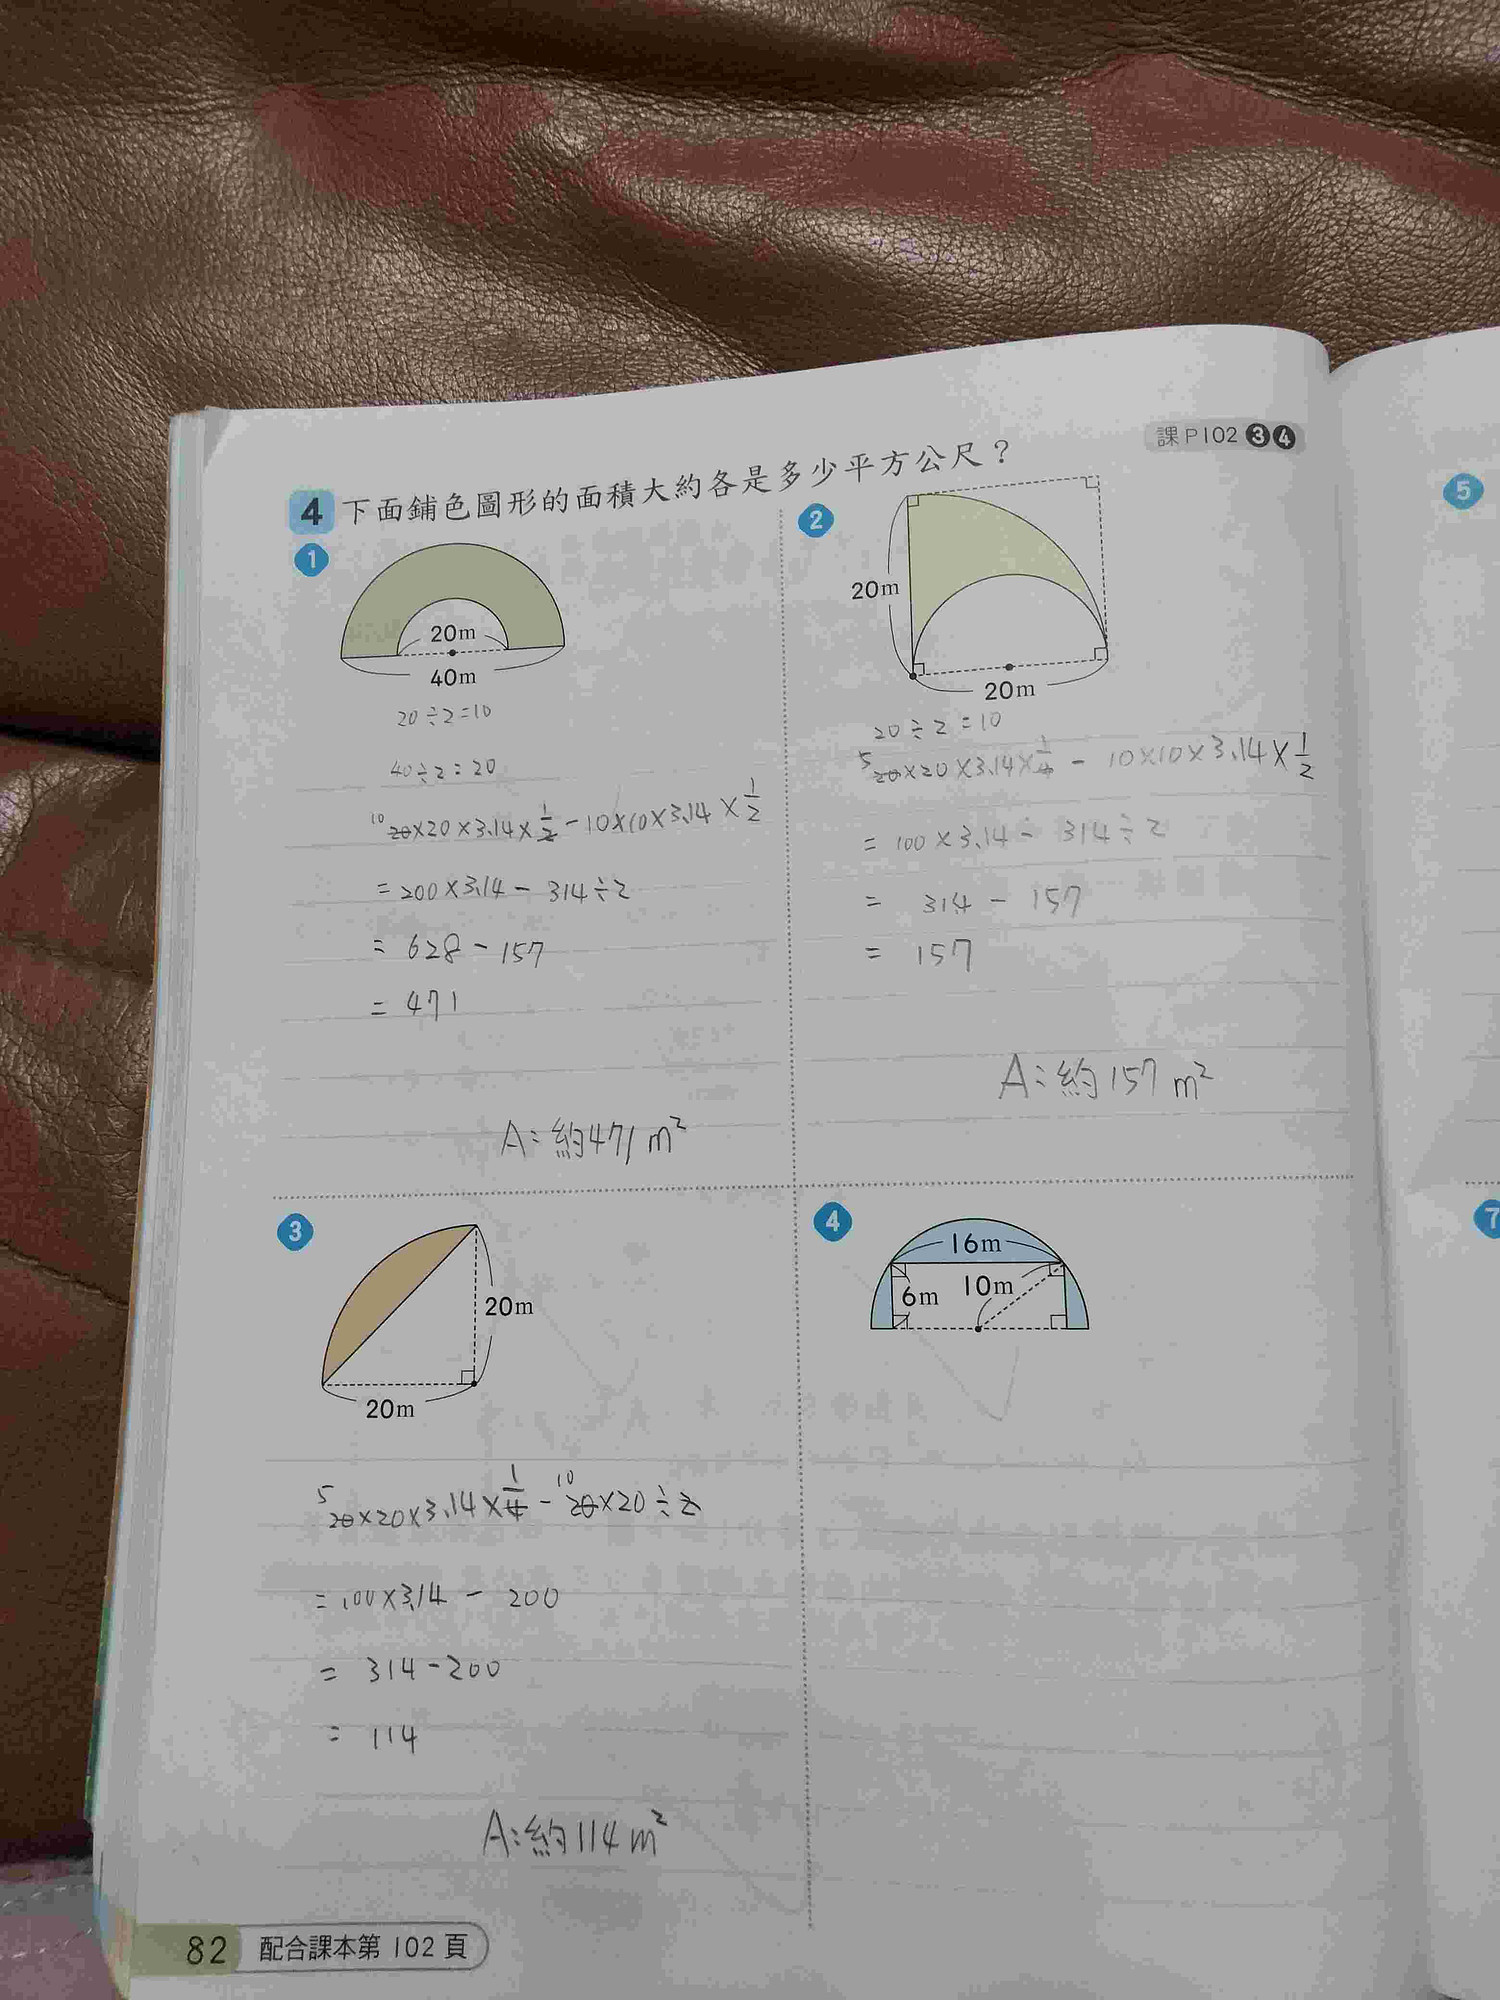 課P102 3 4
4 下面鋪色圖形的面積大約各是多少平方公尺？
1
20m
40m
20÷2=10
40÷2=20
10
20×20×3.14×1/2-10×10×3.14×1/2
=200×3.14-314÷2
=628-157
=471
A:約471m²
2
20m
20m
20÷2=10
5
20×20×3.14×1/4-10×10×3.14×1/2
=100×3.14-314÷2
=314-157
=157
A:約157m²
3
20m
20m
5 10
20×20×3.14×1/4-20×20÷2
=100×3.14-200
=314-200
=114
A:約114m²
4
16m
6m 10m
5
7
82 配合課本第102頁